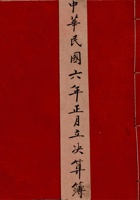 中華民國六年正月立決算簿